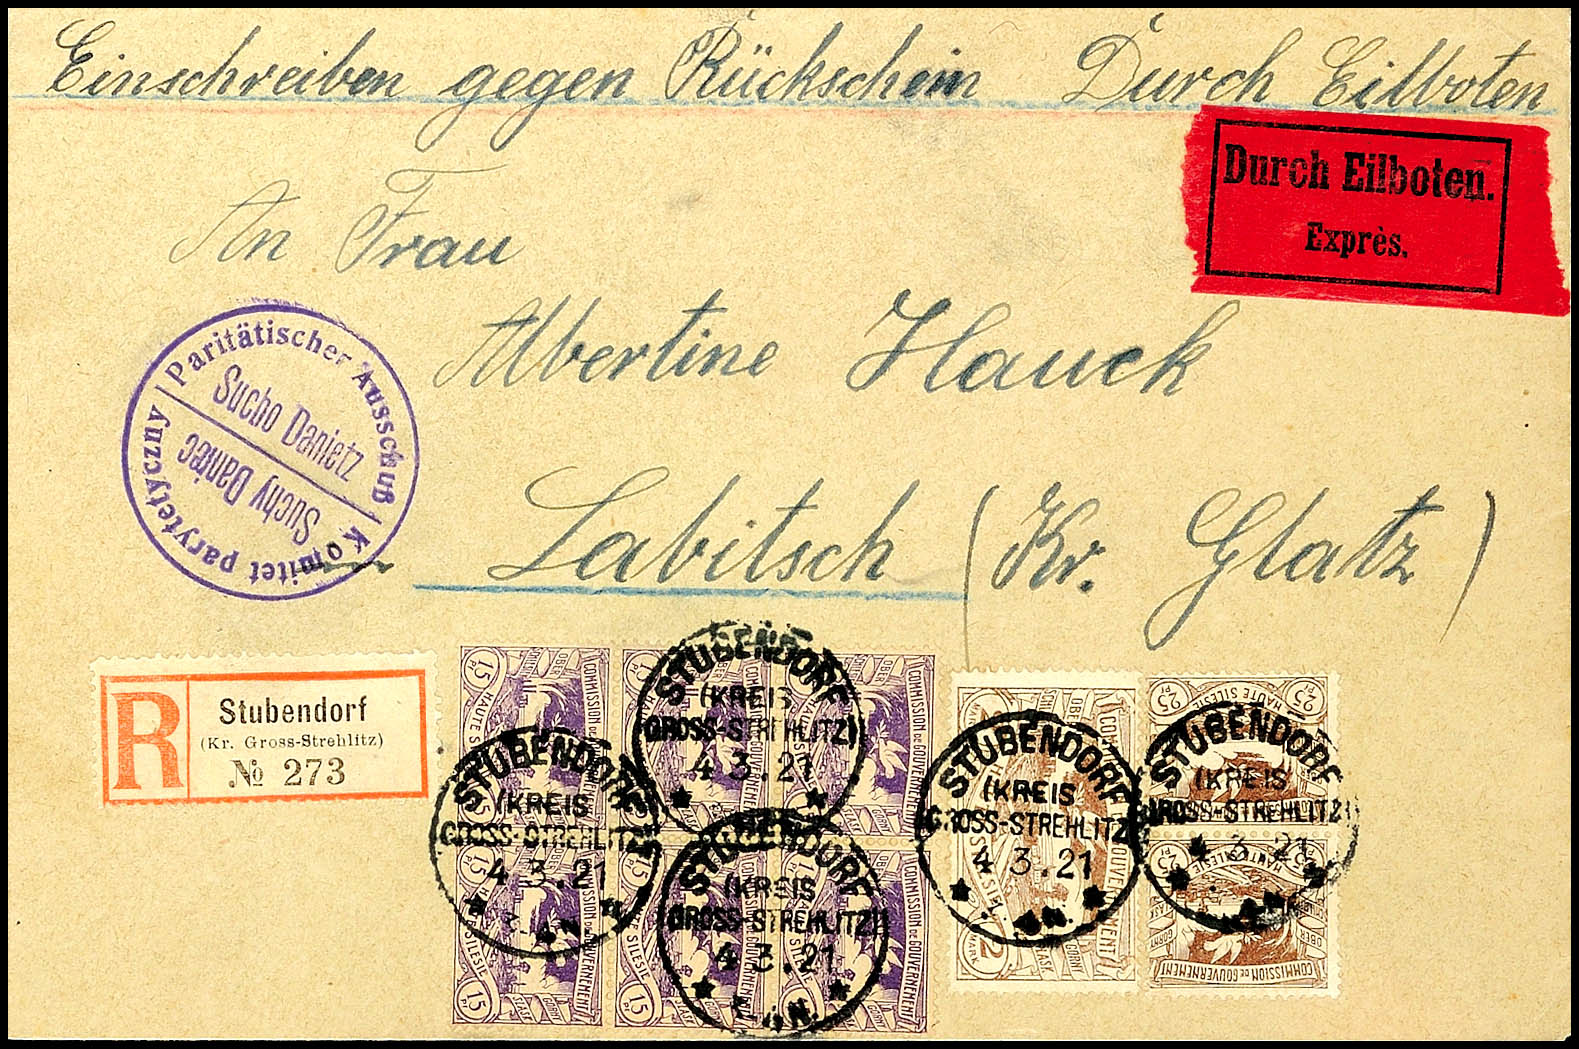 Einschreiben gegen Rückschein Durch Eilboten
Durch Eilboten.
Exprès.
An Frau
Albertine Hauck
Labitsch (Kr. Glatz)
Paritätischer Ausschuß
Sucho Danietz
Suchy Daniec
Komitet parytetyczny
R
Stubendorf
(Kr. Gross-Strehlitz)
№ 273
15 Pf
HAUTE SILESIE
COMMISSION DE GOUVERNEMENT
15
15
15
STUBENDORF
(KREIS
GROSS-STREHLITZ)
4 3.21
STUBENDORF
(KREIS
GROSS-STREHLITZ)
4 3.21
STUBENDORF
(KREIS
GROSS-STREHLITZ)
4 3.21
2
MARK
STUBENDORF
(KREIS
GROSS-STREHLITZ)
4 3.21
25 Pf
HAUTE SILESIE
25 Pf
STUBENDORF
(KREIS
GROSS-STREHLITZ)
4 3.21
COMMISSION DE GOUVERNEMENT